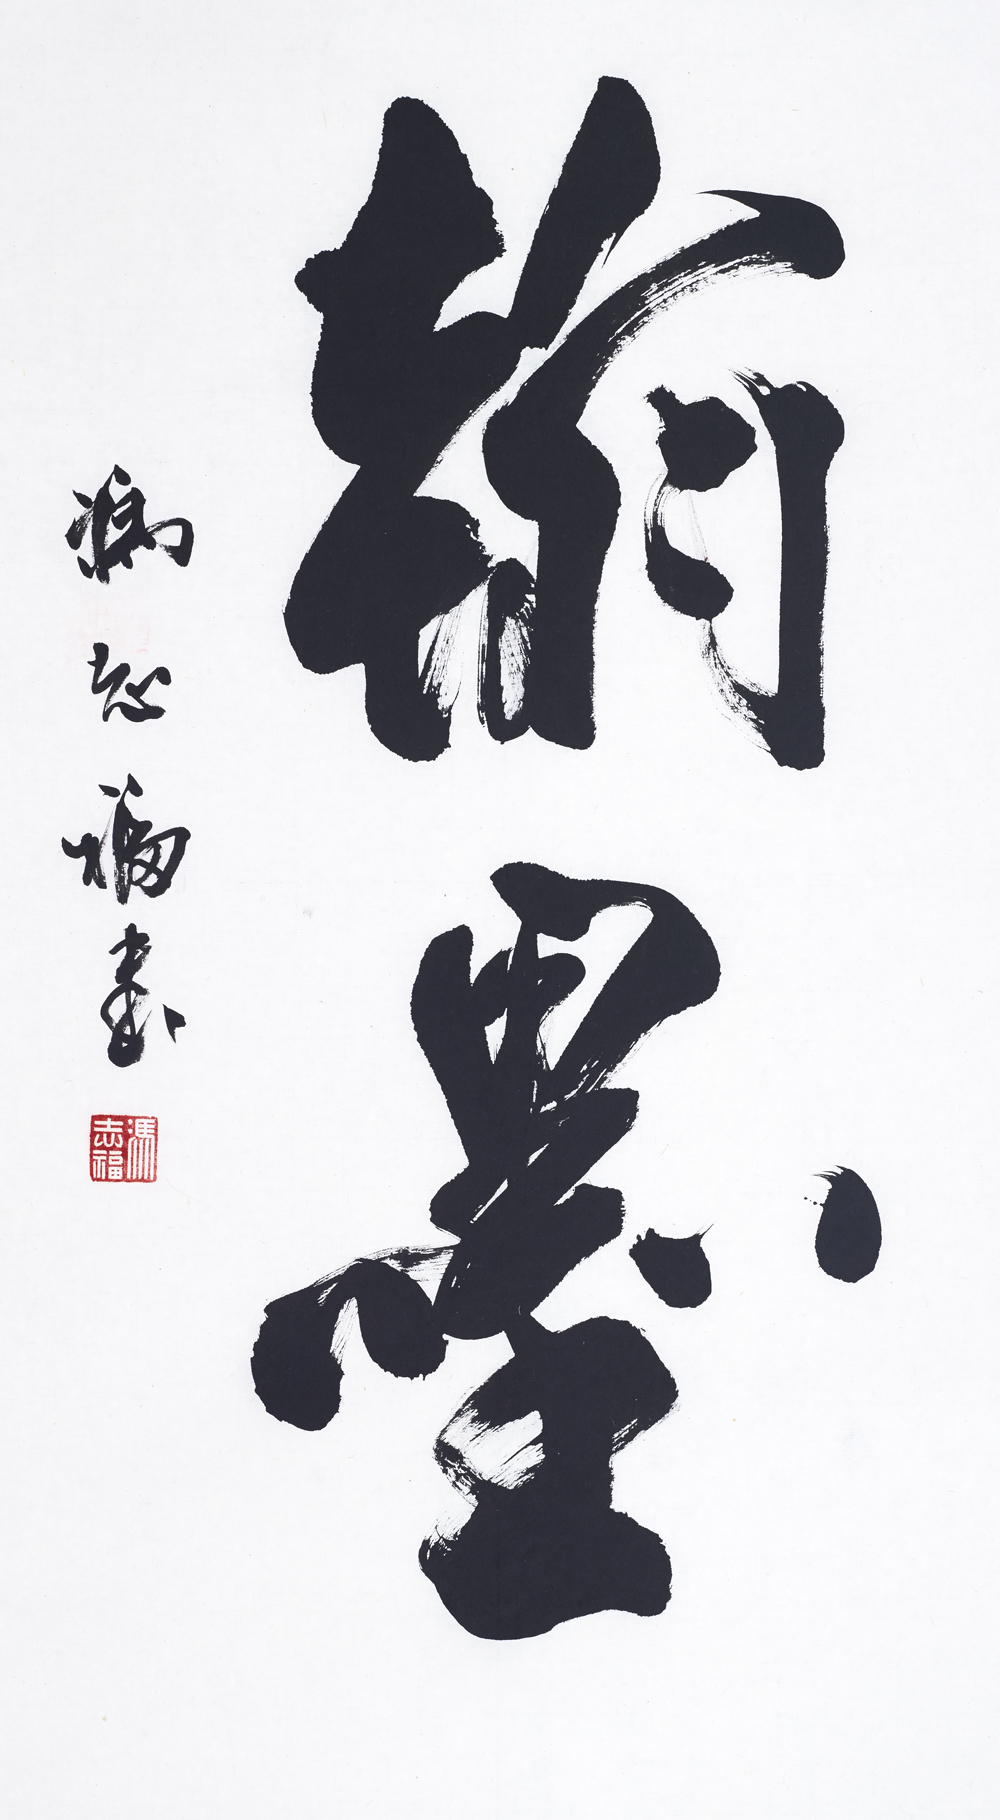 翰墨
馮志福書
馮志福